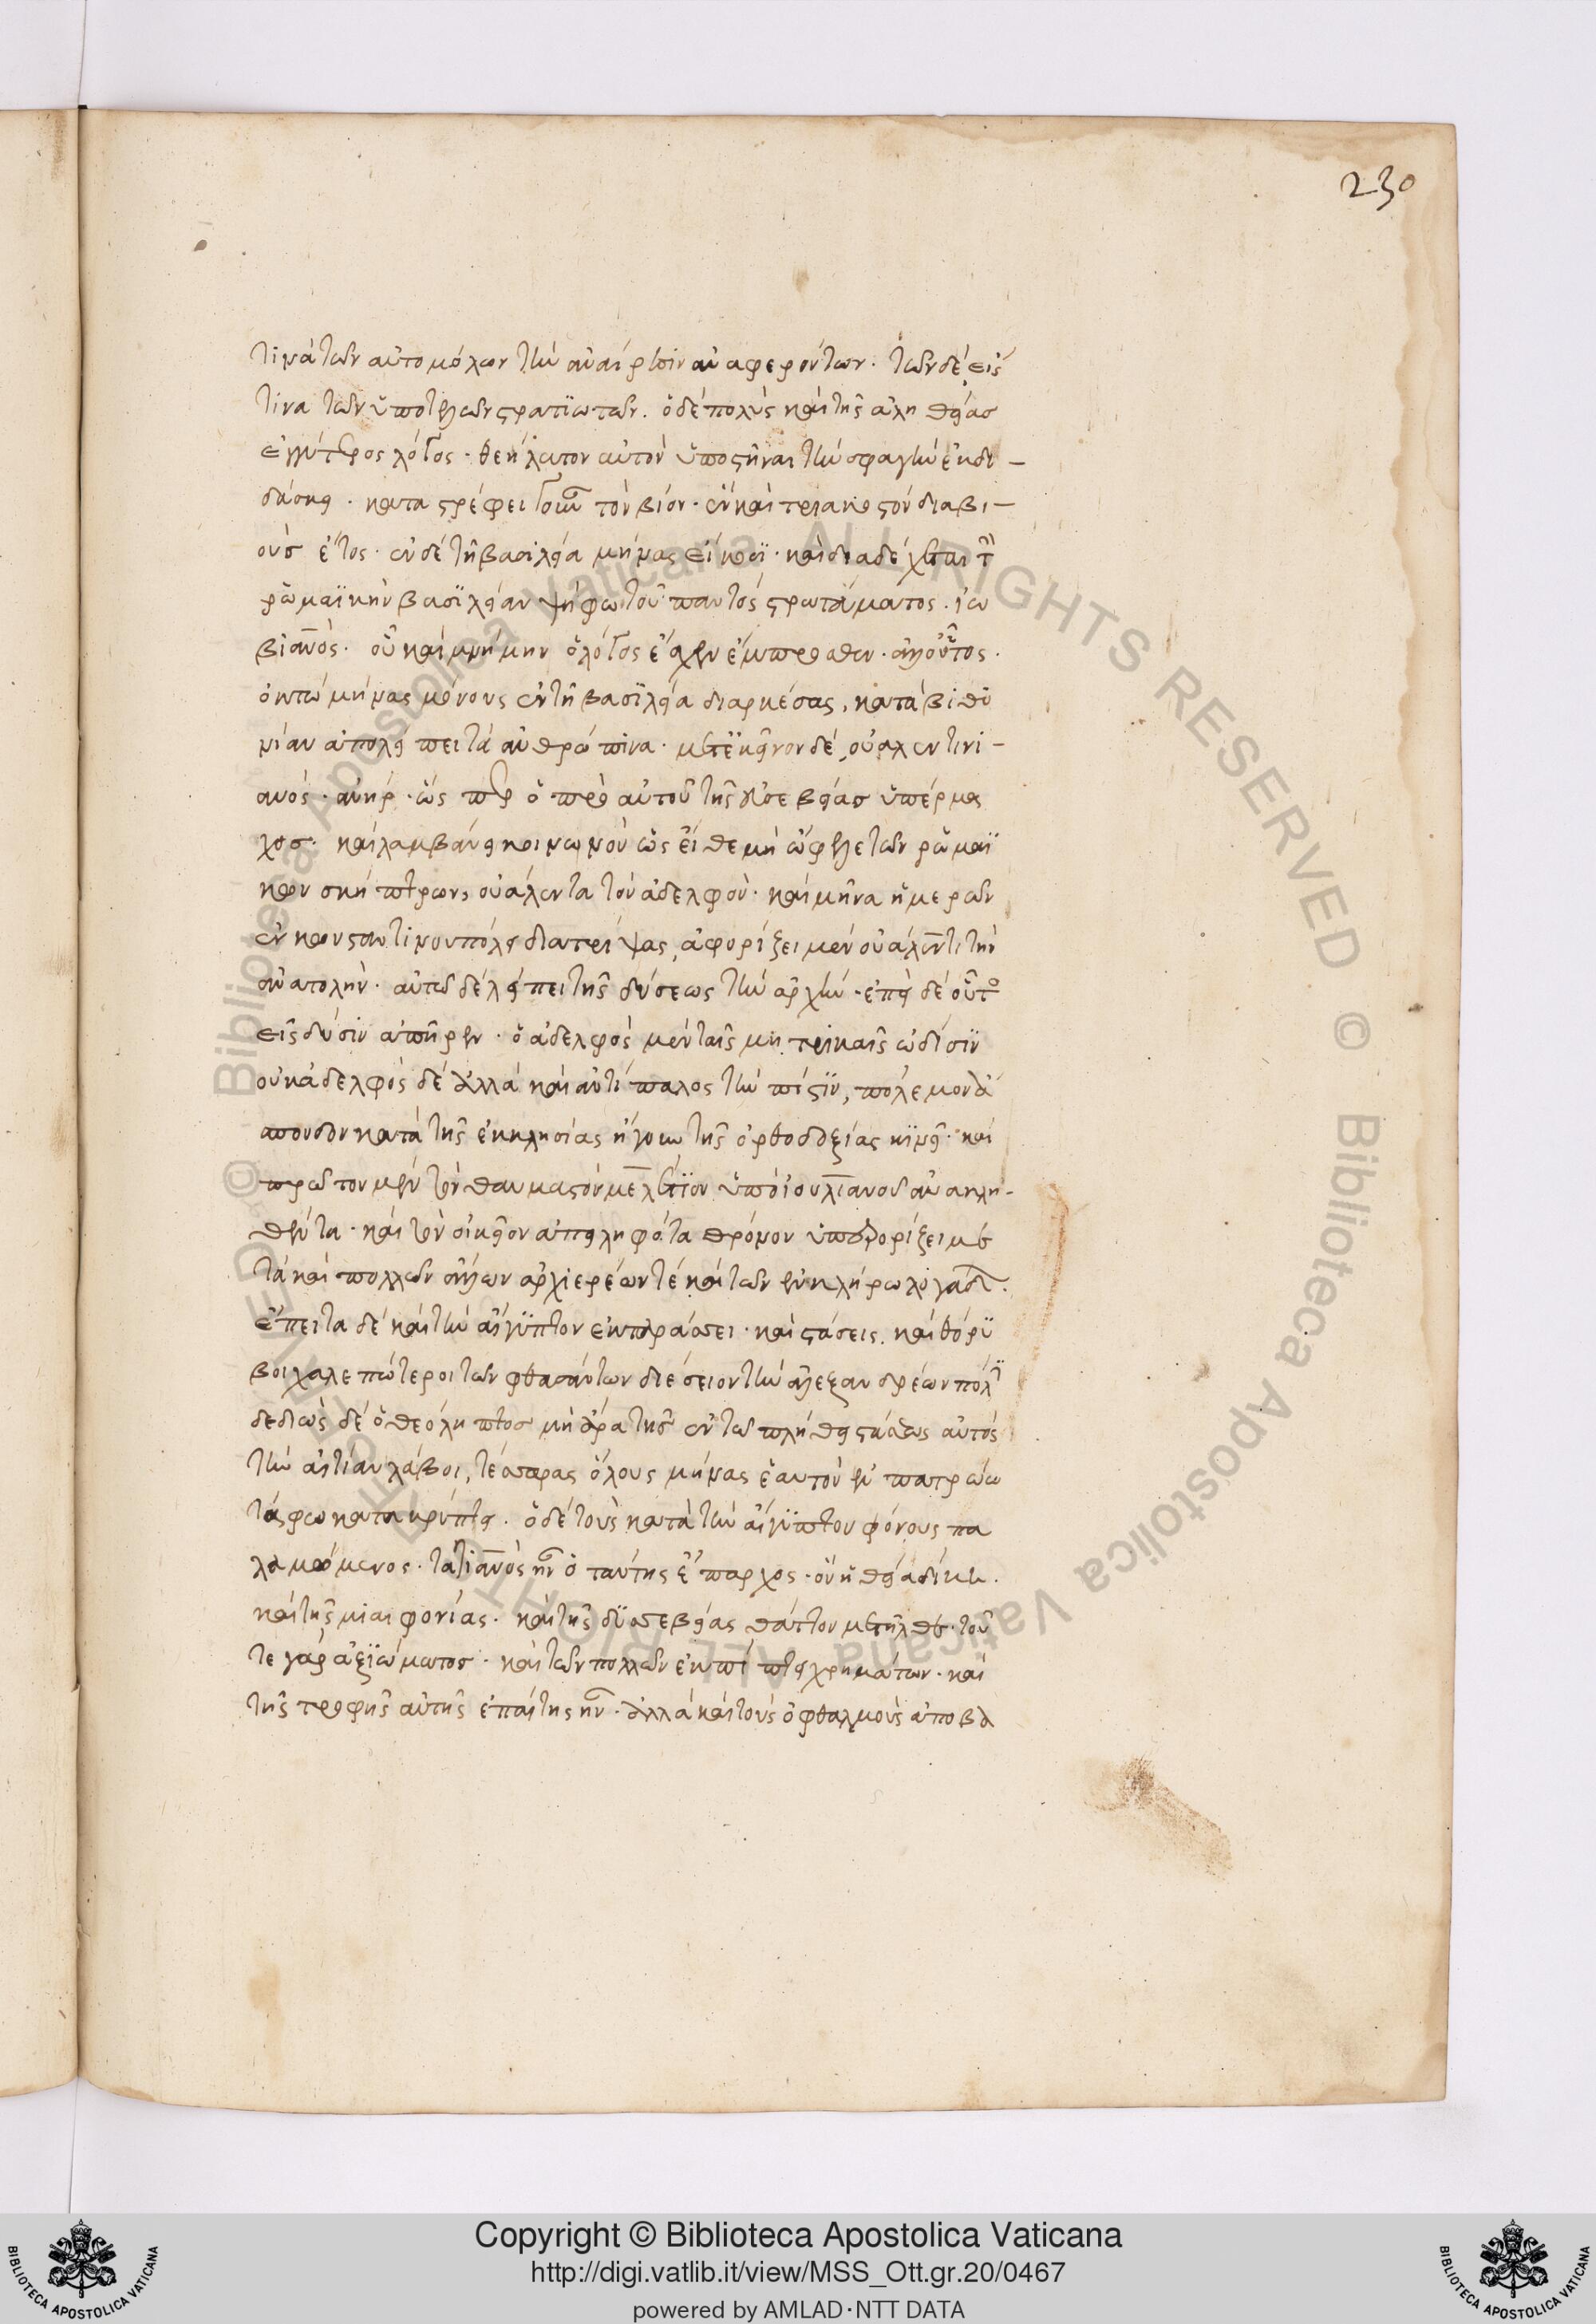 230
τινὰ τῶν αὐτομόλων τὴν ἀναίρεσιν ἀναφερόντων. τῶν δέ, εἴς
τινα τῶν ὑπὸ τελῶν στρατϊωτῶν. ὁ δὲ πολὺς καὶ τῆς ἀληθείασ
ἐγγύτερος λόγος. θεήλατον αὐτὸν ὑποστῆναι τὴν σφαγὴν ἐκδι-
δάσκει. καταστρέφει γοῦν τὸν βίον. ἓν καὶ τριακοστὸν διαβι-
οὺσ ἔτος. ἐν δὲ τῇ βασιλεία μῆνας εἴκοσϊ. καὶ διαδέχεται τὴν
ῥωμαϊκὴν βασϊλείαν ψήφω τοῦ παντὸς στρατεύματος. ἰω
βιανὸς. οὗ καὶ μνήμην ὁ λόγος ἔσχεν ἔμπροσθεν. ἀλλ' οὗτος.
ὀκτὼ μῆνας μόνους ἐν τῇ βασϊλεία διαρκέσας, κατὰ βιθϋ
νίαν ἀπολείπει τὰ ἀνθρώπινα. μετ' ἐκεῖνον δέ, οὐαλεντινι-
ανός. ἀνὴρ. ὥσπερ ὁ πρὸ αὐτοῦ τῆς εὐσεβείασ ὑπέρμα
χοσ. καὶ λαμβάνει κοινωνὸν ὡς εἴθε μὴ ὤφελε τῶν ῥωμαϊ
κῶν σκήπτρων, οὐάλεντα τὸν ἀδελφόν. καὶ μῆνα ἡμερῶν
ἐν κωνσταντινουπόλει διατρίψας, ἀφορίζει μὲν οὐάλεντι τὴν
ἀνατολὴν. αὐτῶ δὲ λείπει τῆς δύσεως τὴν ἀρχὴν. ἐπεὶ δὲ οὗτος
εἰς δύσιν ἀπῆρεν. ὁ ἀδελφὸς μὲν ταῖς μητρικαῖς ὠδίσϊν
οὐκ ἀδελφὸς δὲ ἀλλὰ καὶ ἀντίπαλος τὴν πίστϊν, πόλεμον ἄ
σπονδον κατὰ τῆς ἐκκλησίας ἤγουν τῆς ὀρθοδοξίας κϊνεῖ. καὶ
πρῶτον μὲν τὸν θαυμαστὸν μελέτϊον ὑπὸ ἰουλιανοῦ ἀνακλη-
θέντα. καὶ τὸν οἰκεῖον ἀπειληφότα θρόνον ὑπερορίζει με
τὰ καὶ πολλῶν ἄλλων ἀρχιερέων τὲ καὶ τῶν ἐν κλήρω λογάδων.
ἔπειτα δὲ καὶ τὴν αἴγϋπτον ἐκταράσσει. καὶ στάσεις. καὶ θόρϋ
βοι χαλεπώτεροι τῶν φθασάντων διέσειον τὴν ἀλεξανδρέων πόλϊν
δεδιὼς δὲ ὁ θεόληπτοσ μὴ ἄρα τῆς ἐν τῶ πλήθει στάσεως αὐτὸς
τὴν αἰτίαν λάβοι, τέσσαρας ὅλους μῆνας ἑαυτὸν ἐν πατρώω
τάφω κατακρύπτει. ὁ δὲ τοὺς κατὰ τὴν αἴγϋπτον φόνους πα
λαμώμενος. τατιανὸς ἦν ὁ ταύτης ἔπαρχος. ὃν ἡ θεία δίκη.
καὶ τῆς μιαιφονίας. καὶ τῆς δϋσσεβείας θᾶττον μετῆλθε. τοῦ
τε γὰρ ἀξϊώματοσ. καὶ τῶν πολλῶν ἐκπίπτει χρημάτων. καὶ
τῆς τροφῆς αὐτῆς ἐπαίτης ἦν. ἀλλὰ καὶ τοὺς ὀφθαλμοὺς ἀποβα
Copyright © Biblioteca Apostolica Vaticana
http://digi.vatlib.it/view/MSS_Ott.gr.20/0467
powered by AMLAD·NTT DATA